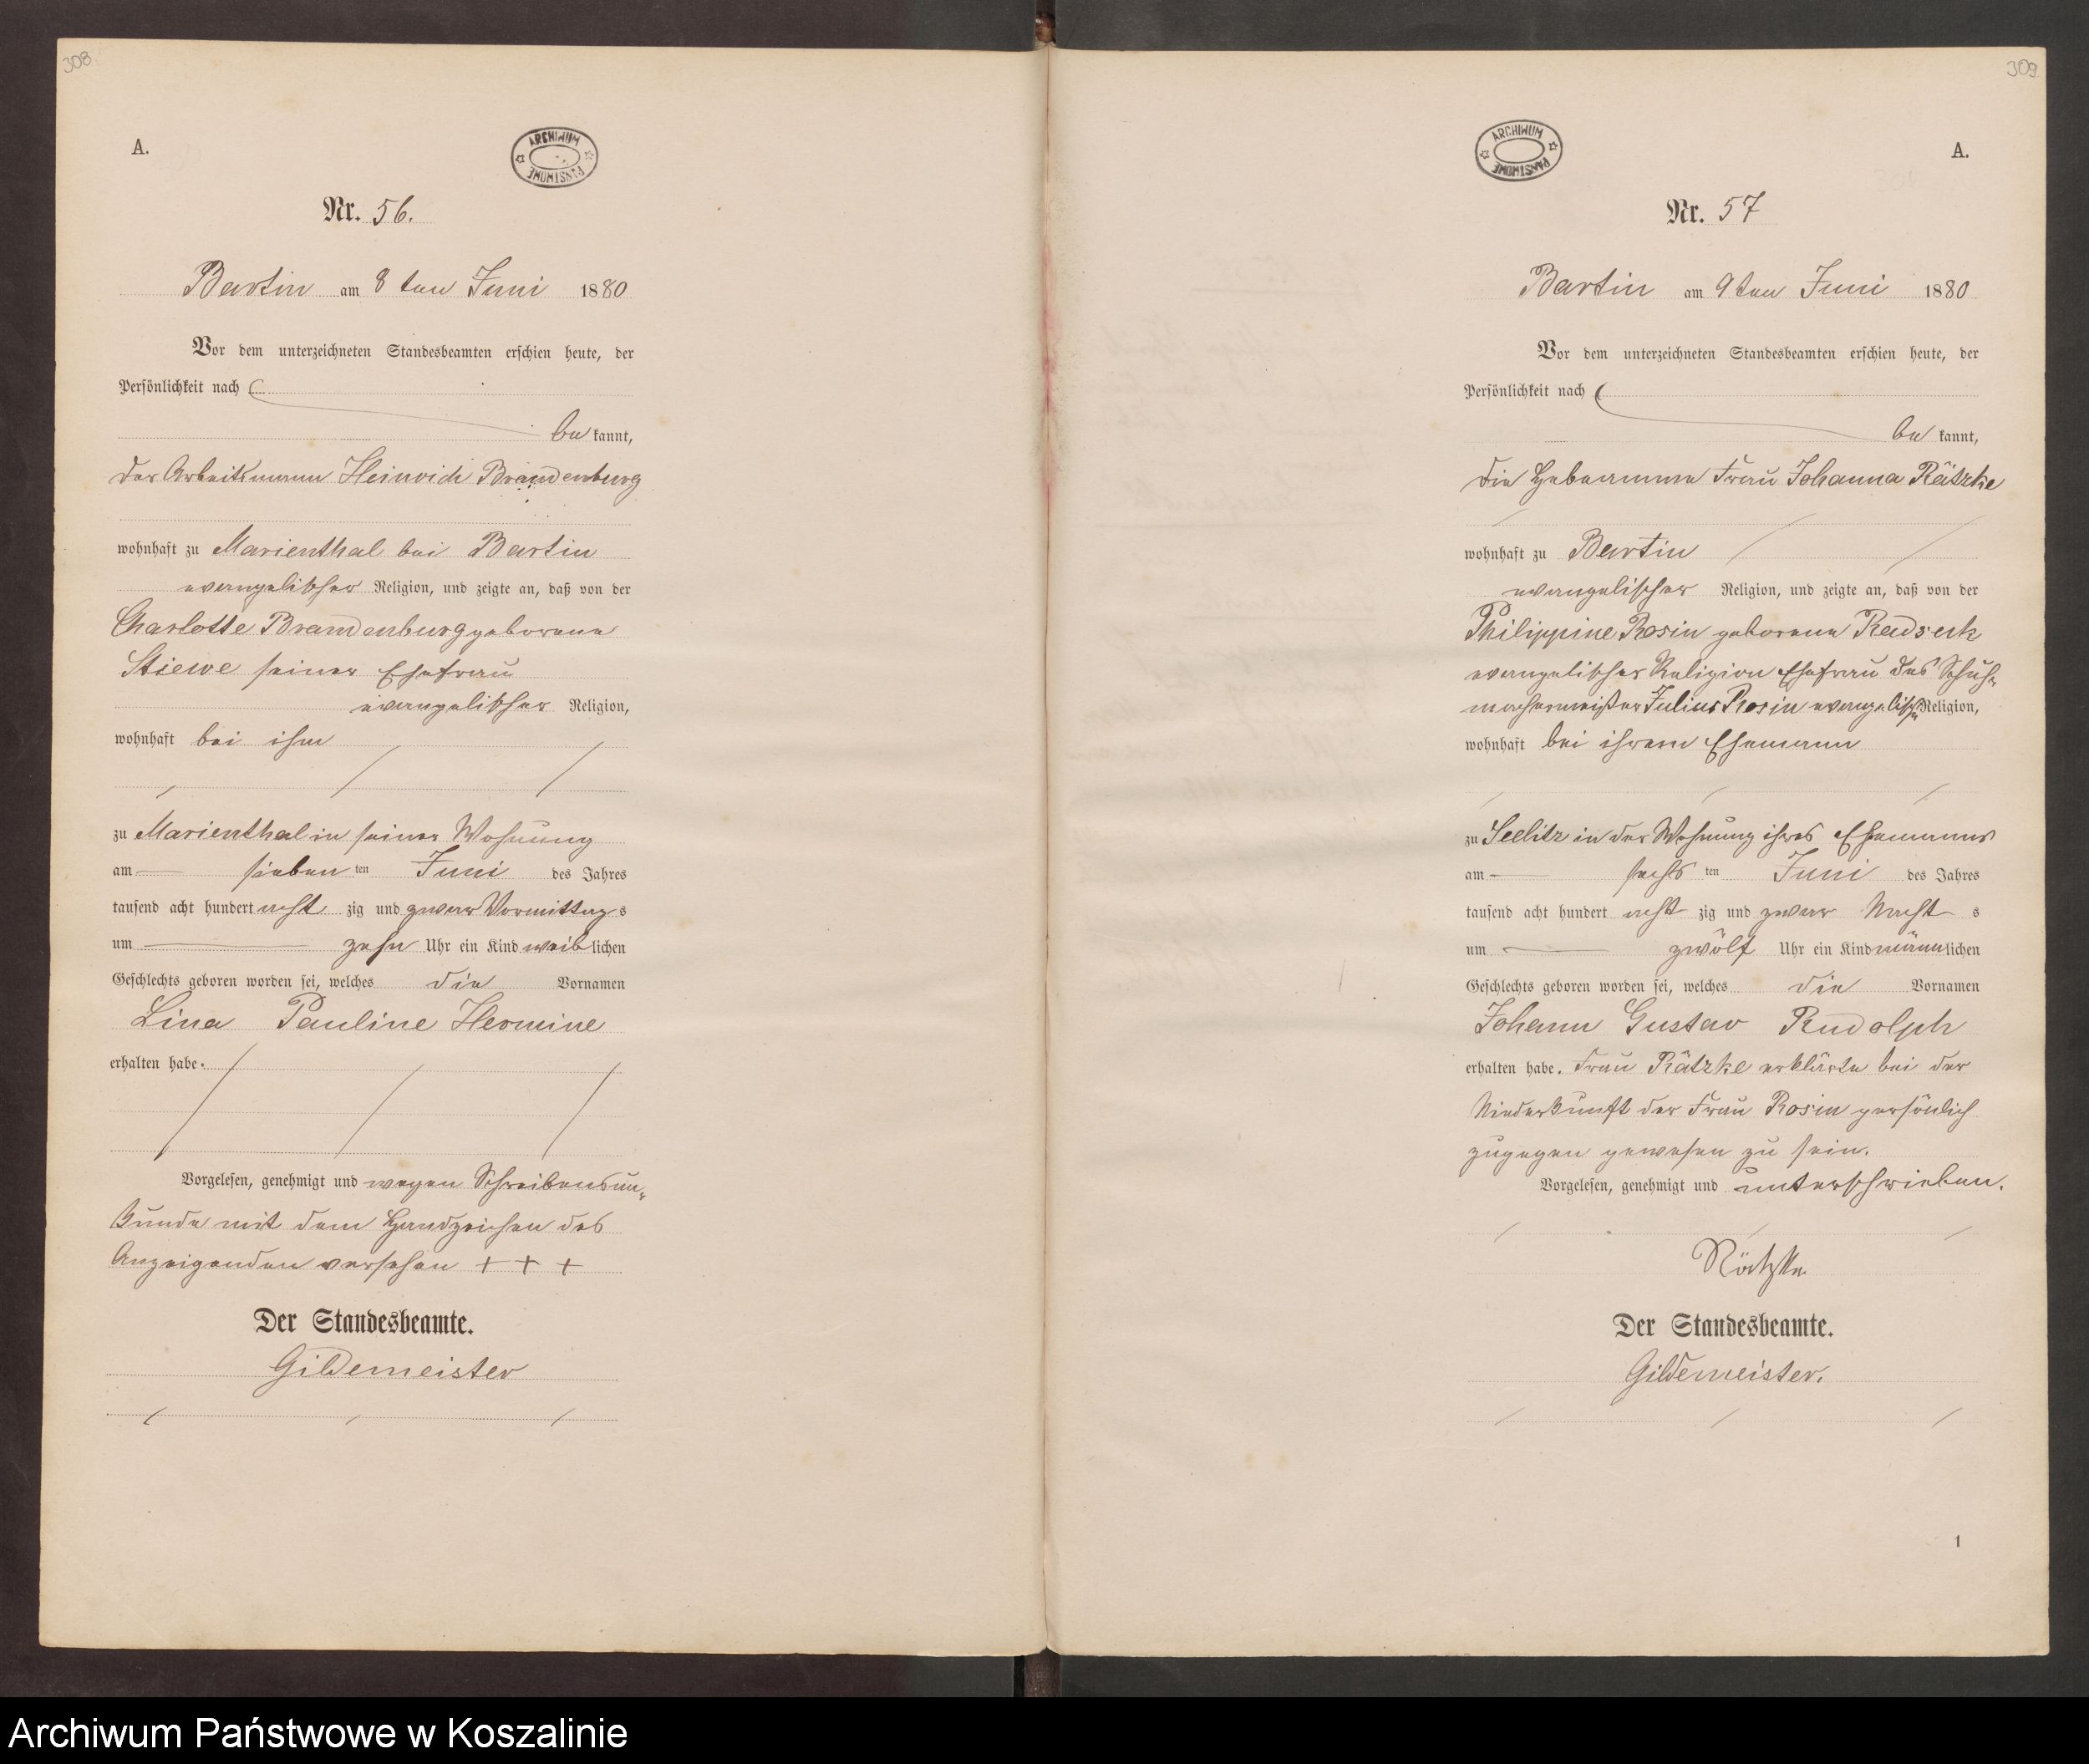 308
A.
ARCHIWUM PAŃSTWOWE
Nr. 56.
Bartin am 8 ten Juni 1880
Vor dem unterzeichneten Standesbeamten erschien heute, der
Persönlichkeit nach
be kannt,
der Arbeitsmann Heinrich Brandenburg
wohnhaft zu Marienthal bei Bartin
evangelischer Religion, und zeigte an, daß von der
Charlotte Brandenburg geborene
Stiewe seiner Ehefrau
evangelischer Religion,
wohnhaft bei ihm
zu Marienthal in seiner Wohnung
am sieben ten Juni des Jahres
tausend acht hundert acht zig und zwar Vormittag s
um zehn Uhr ein Kind weib lichen
Geschlechts geboren worden sei, welches die Vornamen
Lina Pauline Hermine
erhalten habe.
Vorgelesen, genehmigt und wegen Schreibensun-
kunde mit dem Handzeichen des
Anzeigenden versehen + + +
Der Standesbeamte.
Gildemeister
309
ARCHIWUM PAŃSTWOWE
A.
Nr. 57
Bartin am 9 ten Juni 1880
Vor dem unterzeichneten Standesbeamten erschien heute, der
Persönlichkeit nach
be kannt,
die Hebamme Frau Johanna Rätzke
wohnhaft zu Bartin
evangelischer Religion, und zeigte an, daß von der
Philippine Rosin geborene
evangelischer Religion Ehefrau des Schuh-
machermeister Julius Rosin evangelisch Religion,
wohnhaft bei ihrem Ehemann
zu Seelitz in der Wohnung ihres Ehemanns
am sechs ten Juni des Jahres
tausend acht hundert acht zig und zwar Nacht s
um zwölf Uhr ein Kind männ lichen
Geschlechts geboren worden sei, welches die Vornamen
Johann Gustav Rudolph
erhalten habe. Frau Rätzke erklärte bei der
Niederkunft der Frau Rosin persönlich
zugegen gewesen zu sein.
Vorgelesen, genehmigt und unterschrieben.
Rätzke
Der Standesbeamte.
Gildemeister.
1
Archiwum Państwowe w Koszalinie